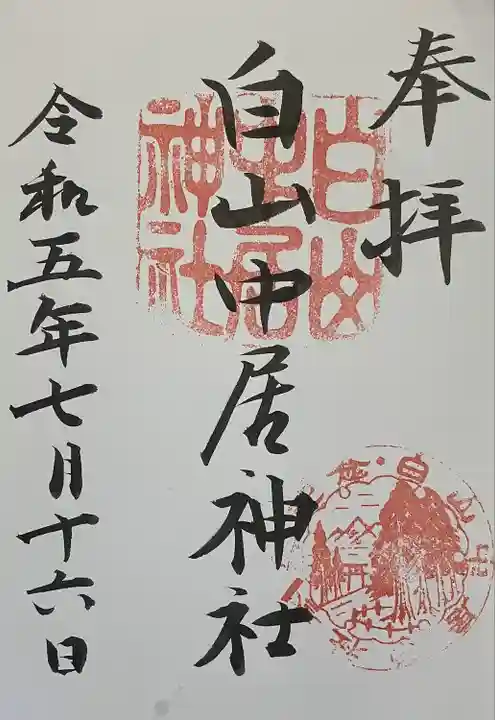 奉拝
白山中居神社
白山中居神社
令和五年七月十六日